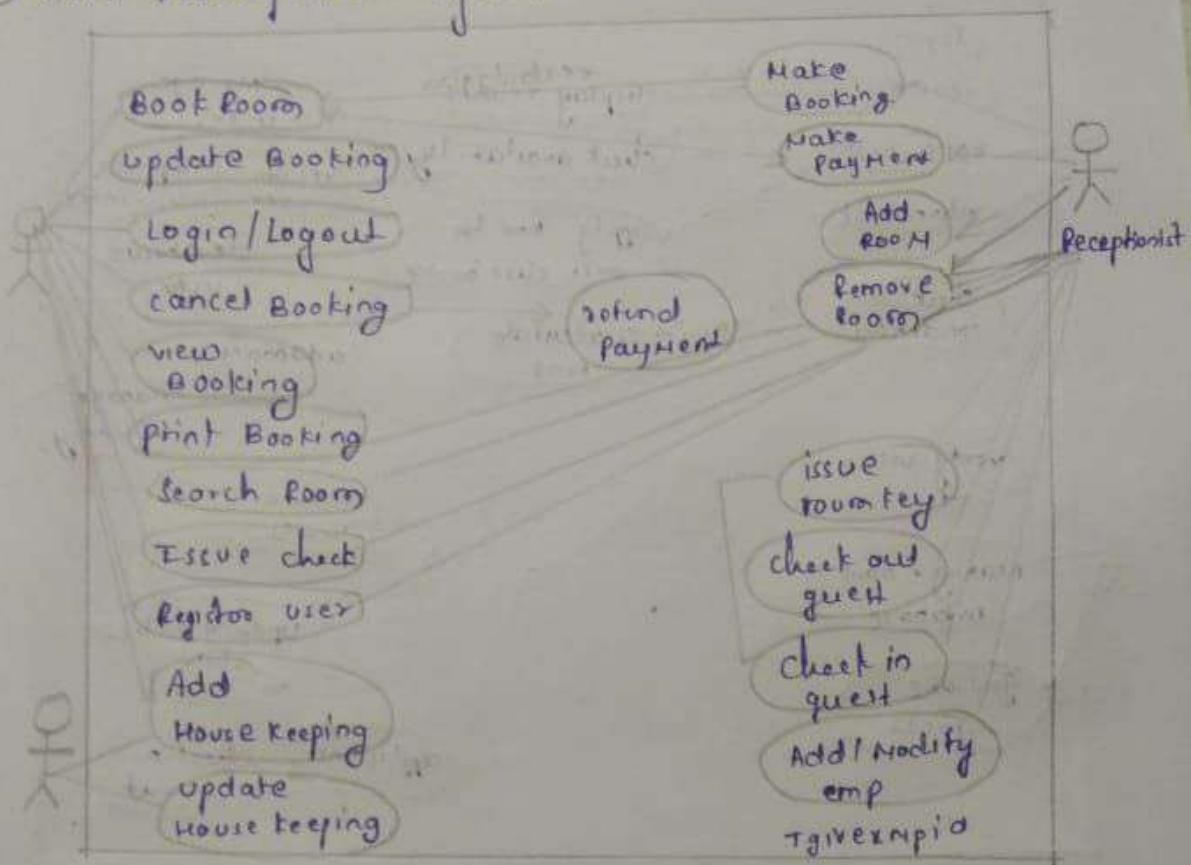 Book Room
update Booking
Login/Logout
cancel Booking
view
Booking
print Booking
Search Room
Issue check
Register user
Add
House keeping
update
House keeping
refund
Payment
Make
Booking
Make
Payment
Add
Room
Remove
Room
Receptionist
issue
room key
check out
guest
check in
guest
Add/Modify
emp